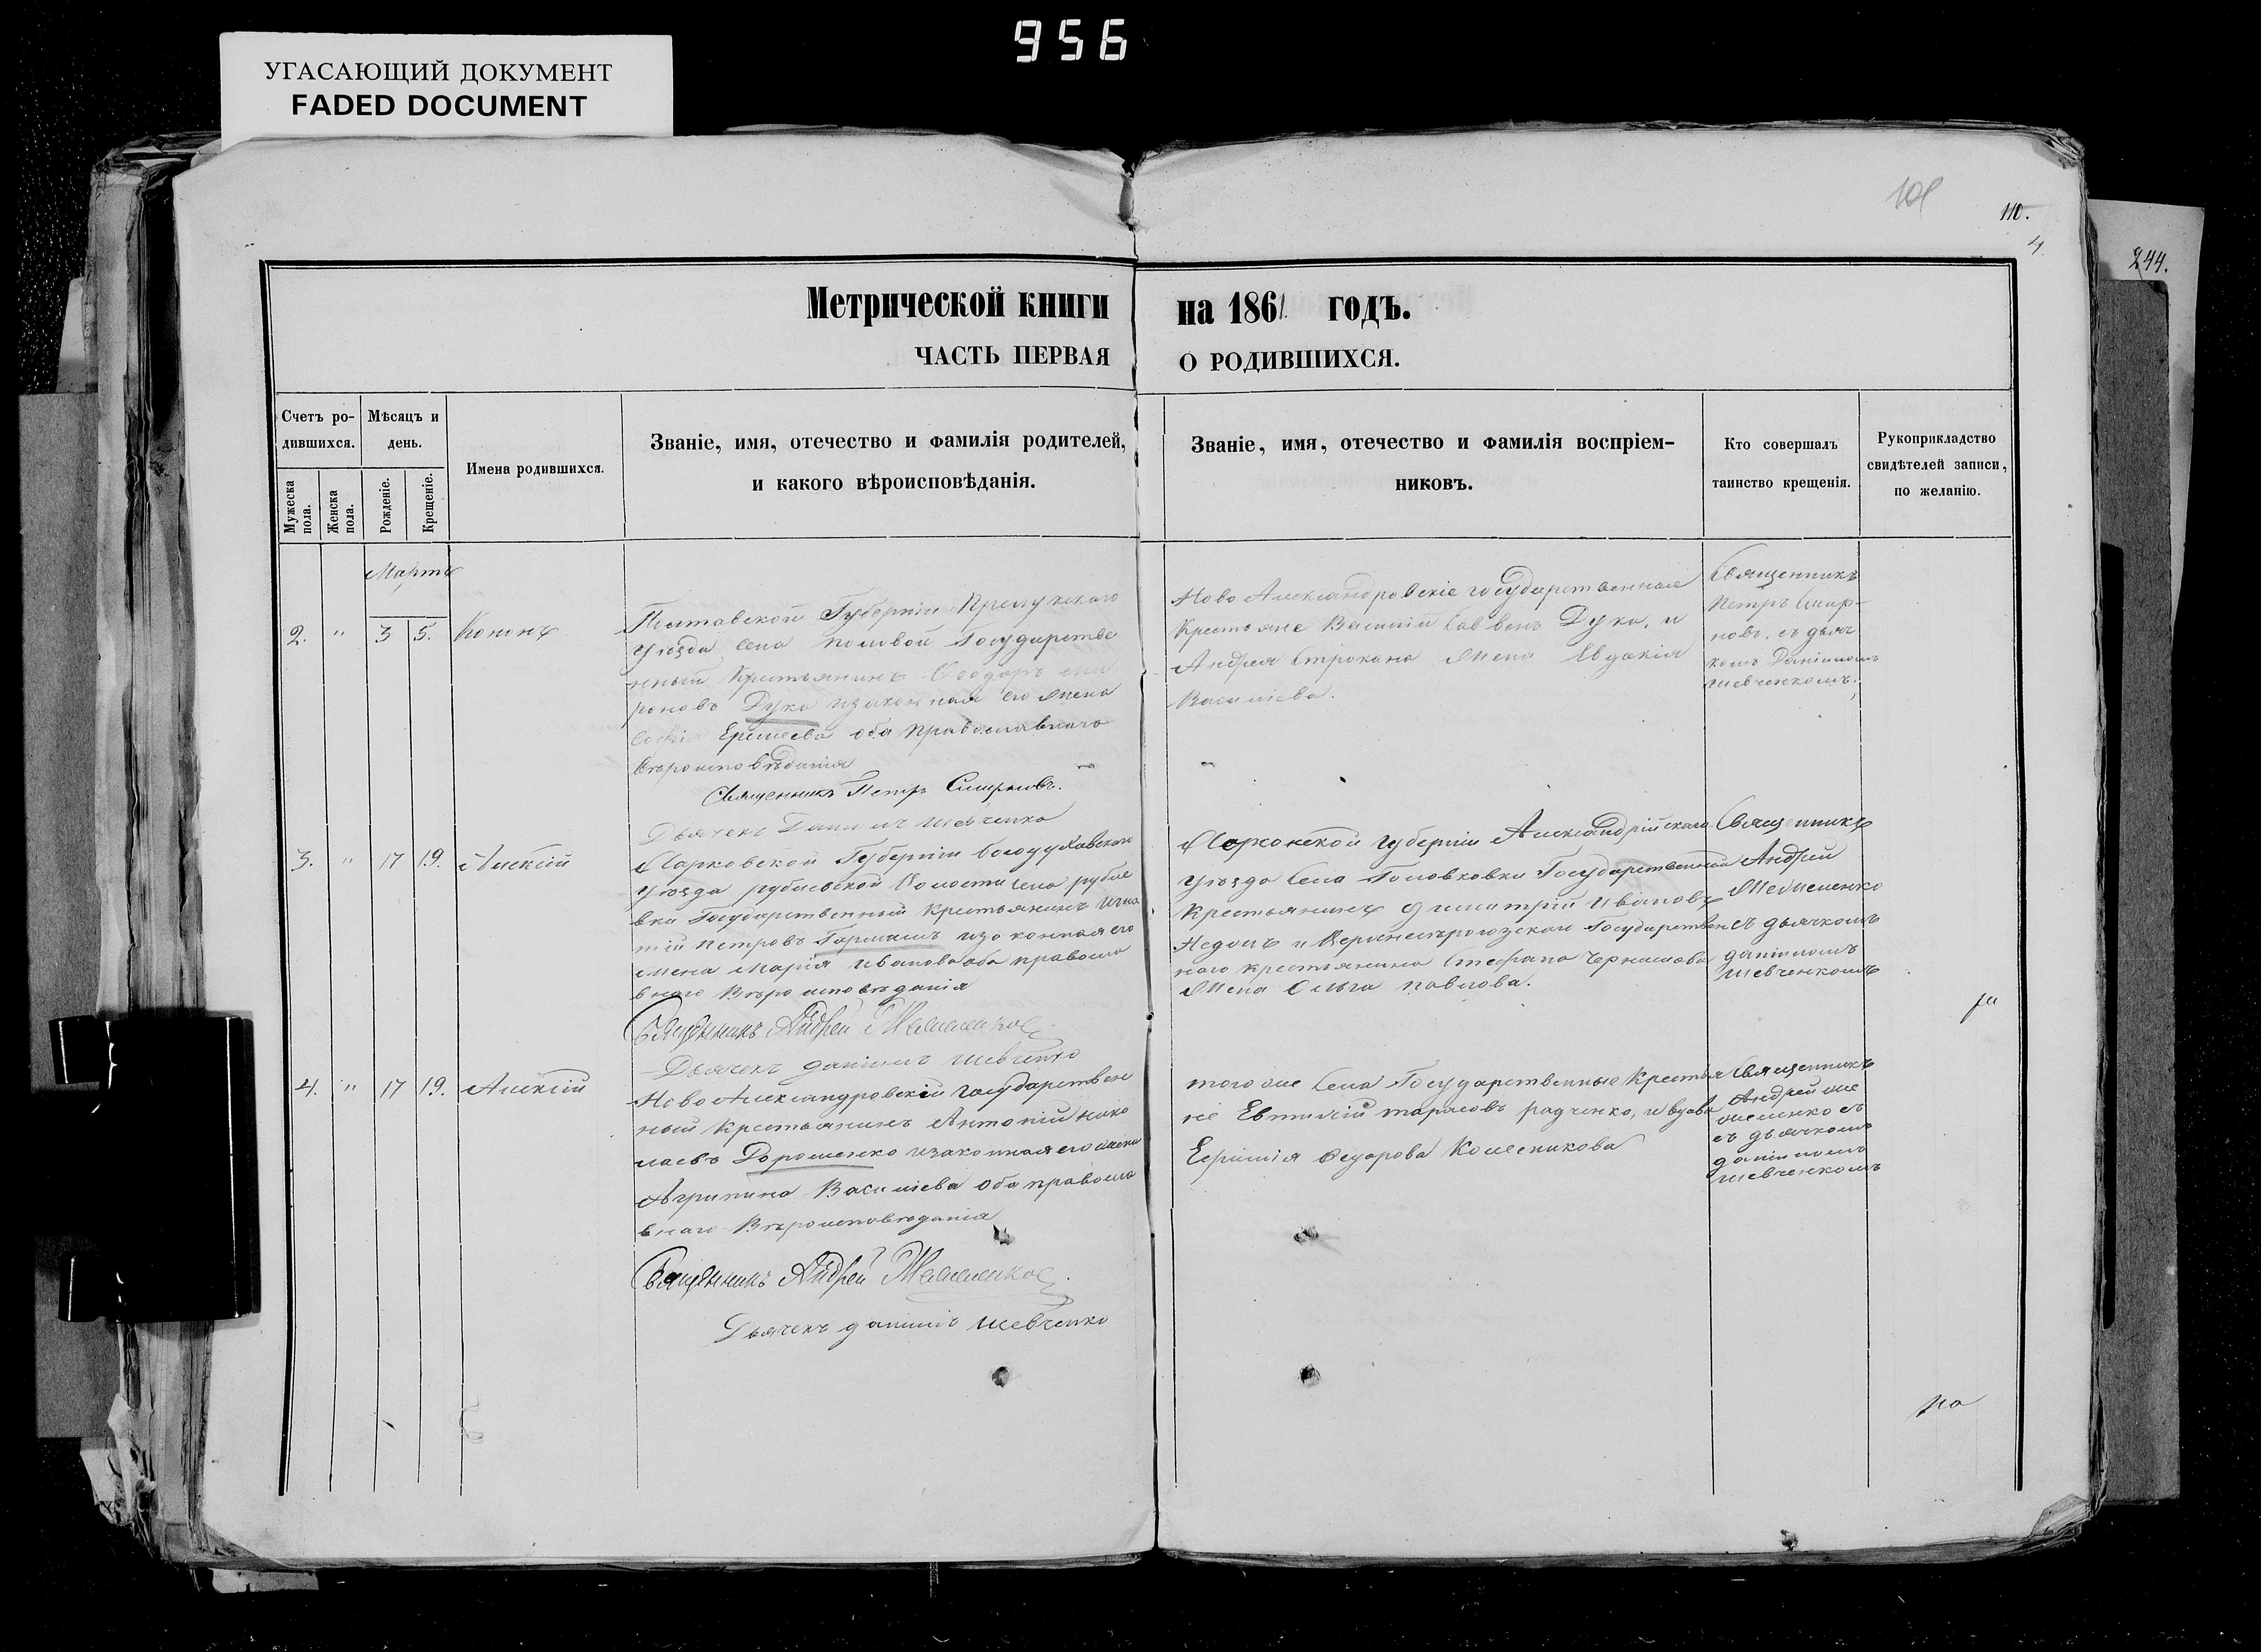 956
УГАСАЮЩИЙ ДОКУМЕНТ
FADED DOCUMENT
110.
4
244.
Метрической книги на 1861 годъ.
ЧАСТЬ ПЕРВАЯ О РОДИВШИХСЯ.
Счетъ ро-
дившихся.
Мужеска пола.
Женска пола.
Мѣсяцъ и
день.
Рожденіе.
Крещеніе.
Имена родившихся.
Званіе, имя, отечество и фамилія родителей,
и какого вѣроисповѣданія.
Званіе, имя, отечество и фамилія воспріем-
никовъ.
Кто совершалъ
таинство крещенія.
Рукоприкладство
свидѣтелей записи,
по желанію.
Мартъ
2. " 3 5. Кононъ
Полтавской Губерніи Прилукскаго
Уѣзда Села Половой Государстве
нный Крестьянинъ Ѳеодоръ
роновъ Дука изаконная его жена
Софія Еримеева оба православнаго
вѣроисповѣданія
Священникъ Петръ Смирновъ.
Дьячекъ Даніилъ Шевченко
Ново Александровскіе государственные
Крестьяне Василій Саввовъ Дука, и
Андрея Строкана жена Евдокія
Василіева.
Священникъ
Петръ Смир-
новъ. съ дьяч
комъ Даніиломъ
Шевченкомъ.
3. " 17 19. Алексій
Харковской Губерніи Богодуховскаго
Уѣзда рублевской Волости села рубле
вки Государственный Крестьянинъ Игна
тій Петровъ Гармашъ изаконная его
жена Марія Иванова оба правосла
внаго Вѣроисповѣданія
Священникъ Андрей
Дьячекъ даніилъ Шевченко
Херсонской губерніи Александрійскаго
Уѣзда Села Головковки Государственный
Крестьянинъ димитрій Ивановъ
и Государствен
наго крестьянина Стефана
жена Ольга павлова.
Священникъ
Андрей
съ дьячкомъ
даніиломъ
Шевченкомъ
4. " 17 19. Алексій
Ново Александровскій государствен
ный крестьянинъ Антоній Нико
лаевъ Дорошенко изаконная его жена
Агрипина Василіева оба правосла
внаго Вѣроисповѣданія
Священникъ Андрей
Дьячекъ даніилъ Шевченко
того же Села Государственные Крестья
не Евтихій тарасовъ радченко, и вдова
Ефимія Ѳедорова Колесникова
Священникъ
Андрей
съ дьячкомъ
даніиломъ
Шевченкомъ